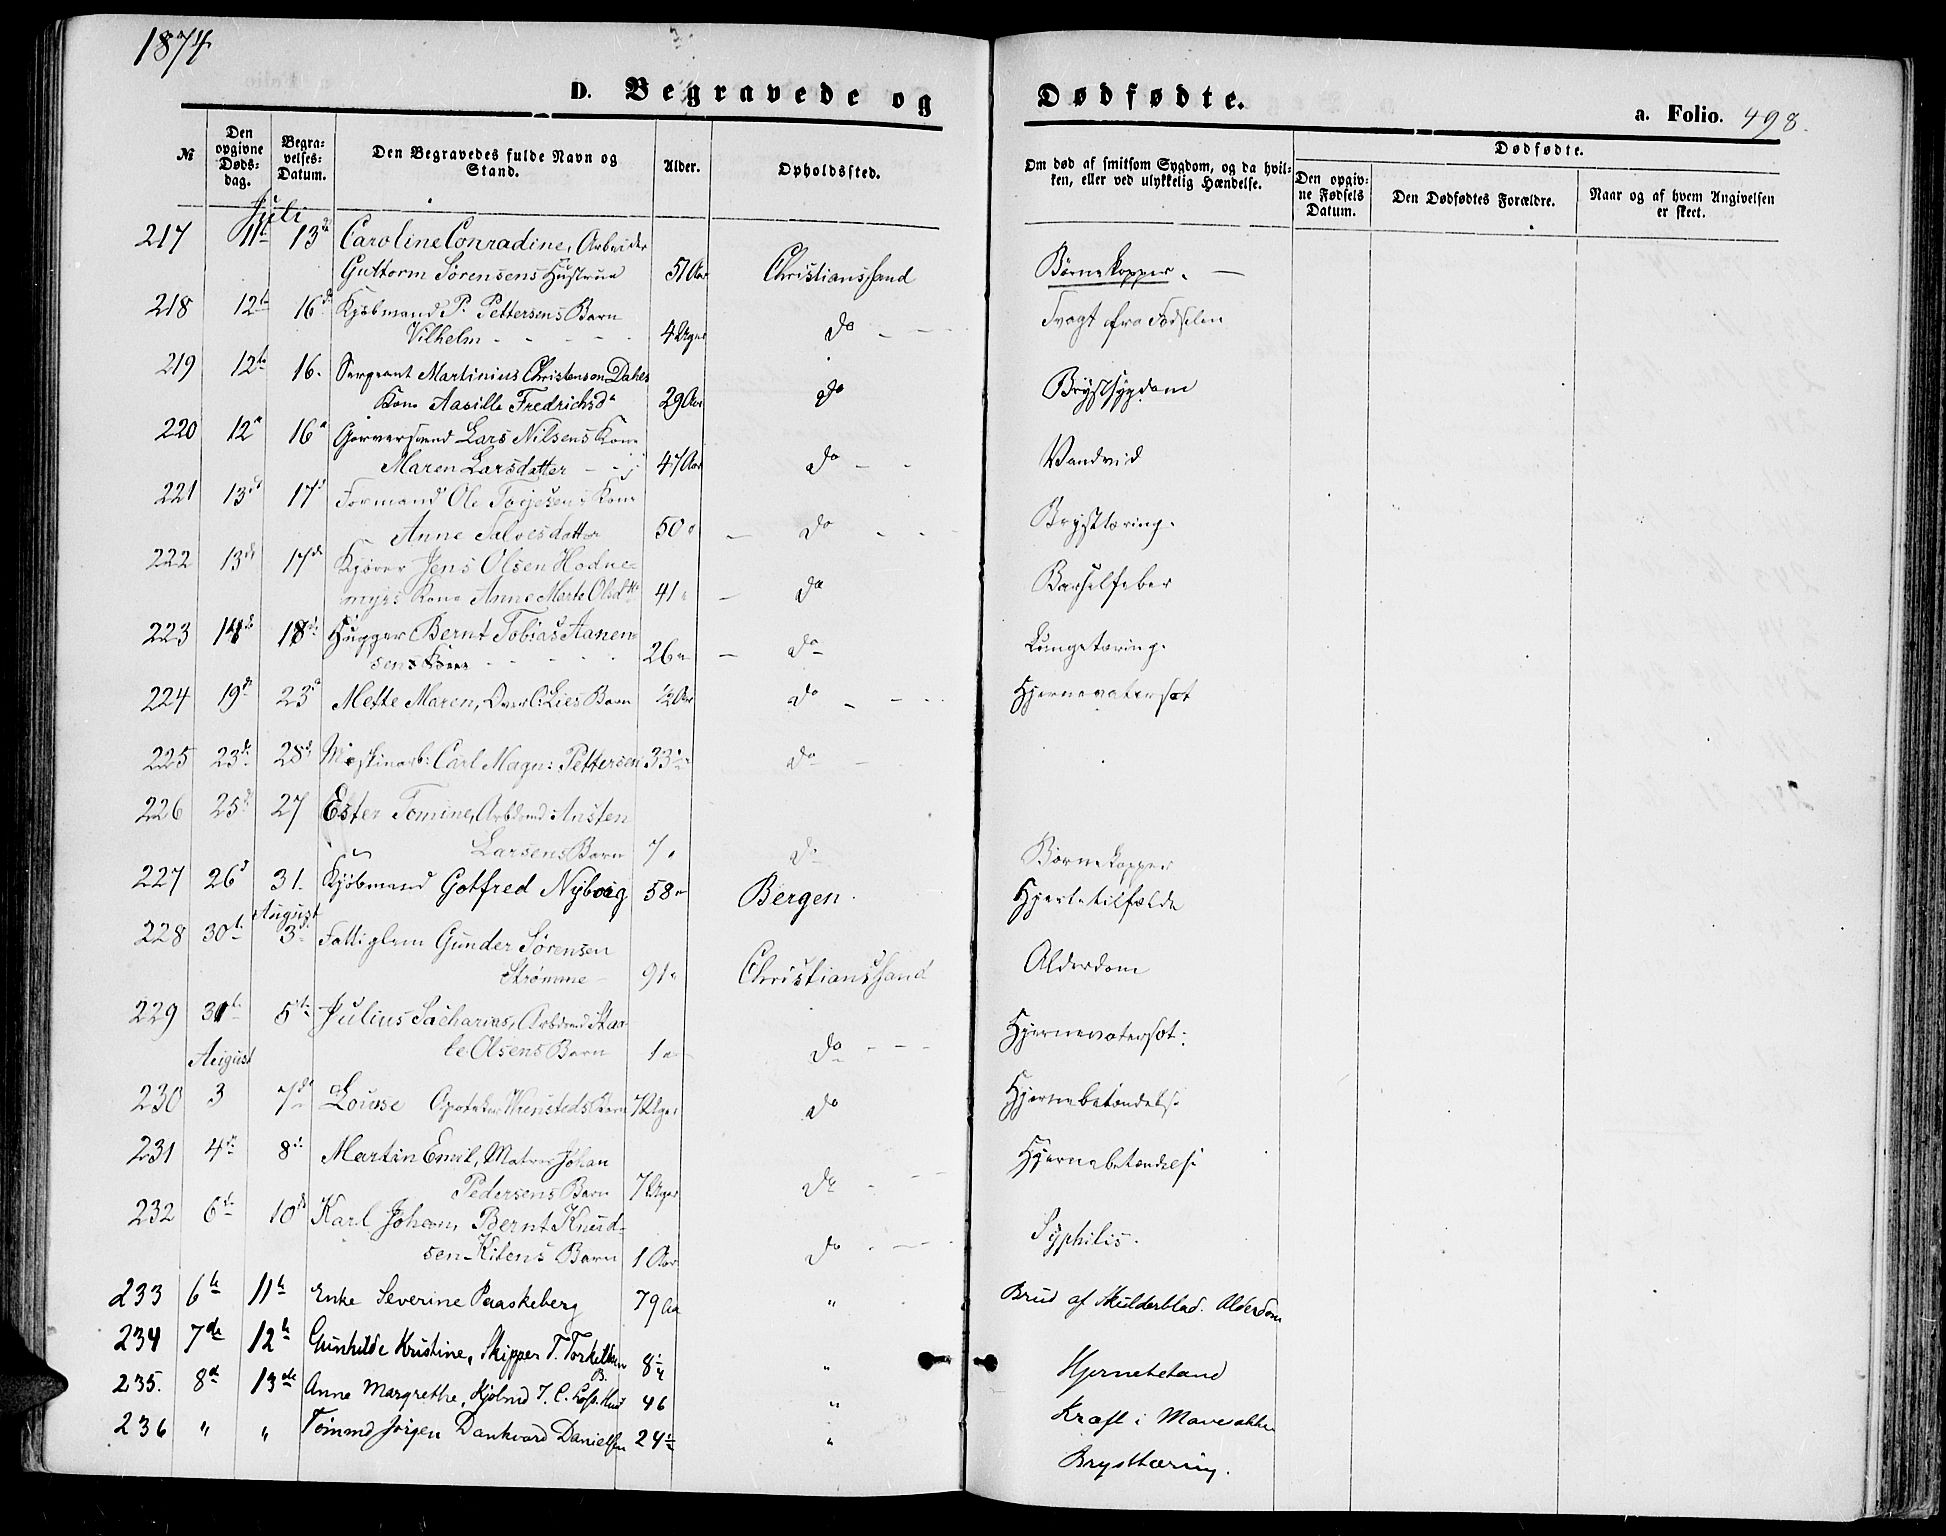 1874
D. Begravede og Dødfødte.
a. Folio. 498.
№ Den opgivne Døds-dag. Begra-velses-Datum. Den Begravedes fulde Navn og Stand. Alder. Opholdssted. Om død af smitsom Sygdom, og da hvil-ken, eller ved ulykkelig Hændelse. Dødfødte.
Den opgiv-ne Fødsels Datum. Den Dødfødtes Forældre. Naar og af hvem Angivelsen er skeet.
Juli
217 11te 13de Caroline Conradine, Arbeider
Guttorm Sørensens Hustrue 51 Aar Christianssand Børnekopper. —
218 12te 16de Kjøbmand P. Pettersens Barn
Vilhelm - - - - 4 Uger do - — Svagt fra Fødselen
219 12te 16. Sergeant Martinius Christenson Dahls
Kone Aasille Fredrichsd. 29 Aar do Brystsygdom
220 12te 16de Garversvend Lars Nilsens Kone
Maren Larsdatter - - 47 Aar do - - Vandvid
221 13de 17de Formand Ole Torjesens Kone
Anne Salvesdatter 50 " — do - - Brysttæring.
222 13de 17de Kjører Jens Olsen Hodne-
myrs Kone Anne Marte Olsdtr 41 " — do Barselfeber
223 14de 18de Hugger Bernt Tobias Aanen-
sens Kone - - - - 26 " — do Lungetæring.
224 19de 23de Mette Maren, Lies Barn ½ Aar do - - - Hjernevatersot
225 23de 28de Maskinarb: Carl Magn: Pettersen 33 do -
226 25de 27 Ester Tomine, Arbdmd Ansten
Larsens Barn 7 " do Børnekopper
227 26de 31. Kjøbmand Gotfred Nyborg 58 " Bergen. Hjertetilfælde
August
228 30te 3de Fattiglem Gunder Sørensen
Strømme - 91 " Christianssand Alderdom
229 31te 5te Julius Sacharias, Arbdmd
Olsens Barn 1 " do - - - Hjernevatersot.
August
230 3 7de Louise Apoteker Barn 7 Uger do Hjernebetændelse
231 4de 8de Martin Emil, Matros Johan
Pedersens Barn 7 Uger do - - Hjernebetændelse
232 6te 10de Karl Johan, Bernt Knud-
sen Kilens Barn 1 Aar do - - Syphilis.
233 6te 11te Enke Severine Paaskeberg 79 Aar " Brud af Skulderblad. Alderdom
234 7de 12te Gunhilde Kristine, Skipper T. Torkildsen
B. 8½ " Hjernebetænd
235. 8de 13de Anne Margrethe, Kjøbmd J. C. Hust 46 " Kræft i Mavesækken
236 " " Tømmd Jørgen Dankvard Danielsen 24½ " Brysttæring.